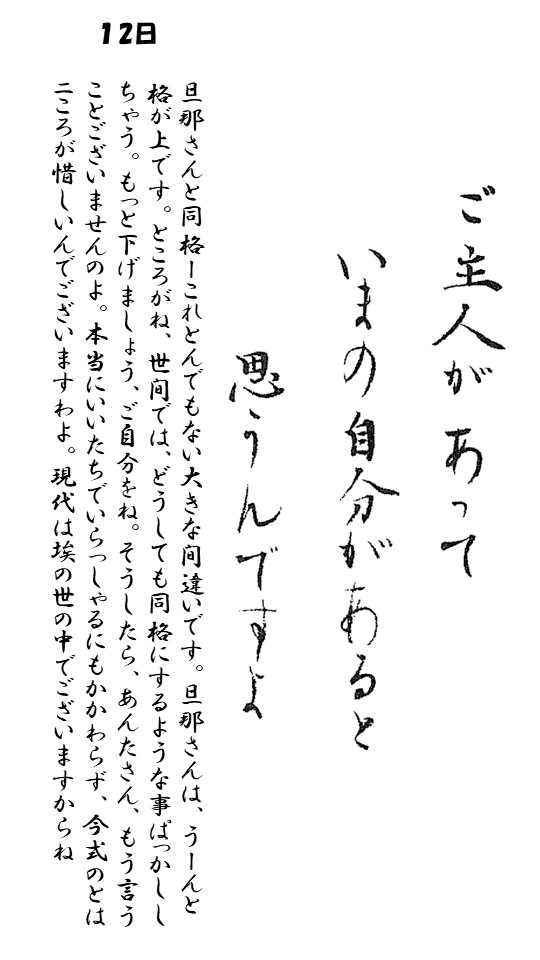 12日
ご主人があって
いまの自分があると
思うんですよ
旦那さんと同格ーこれとんでもない大きな間違いです。旦那さんは、うーんと
格が上です。ところがね、世間では、どうしても同格にするような事ばっかしし
ちゃう。もっと下げましょう、ご自分をね。そうしたら、あんたさん、もう言う
ことございませんのよ。本当にいいたちでいらっしゃるにもかかわらず、今式のとは
ニころが惜しいんでございますわよ。現代は埃の世の中でございますからね